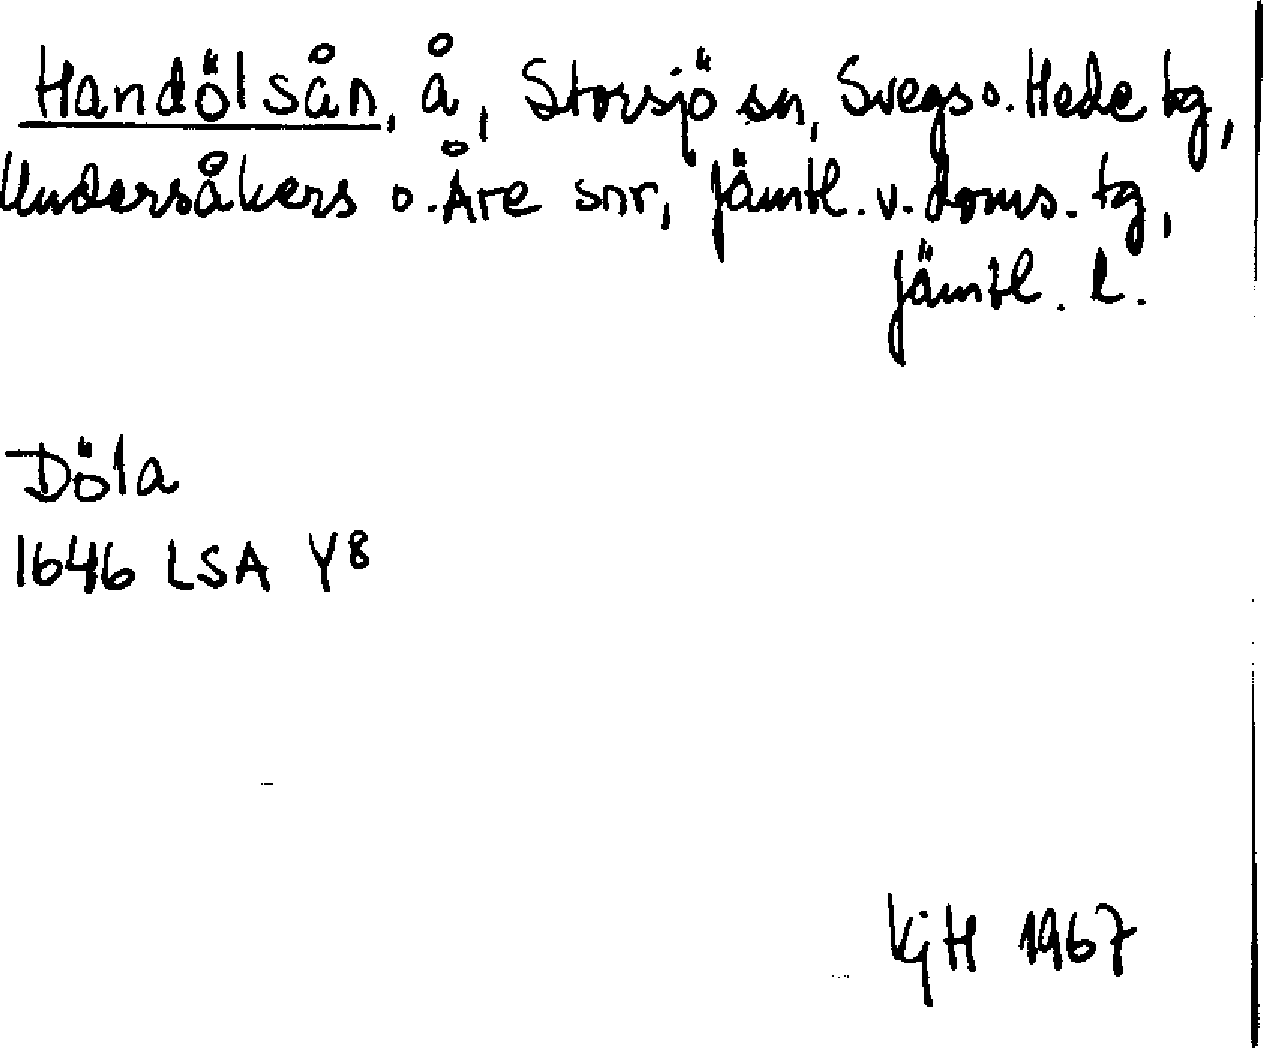 Handölsån, å, Storsjö sn, Svegs o. Hede tg,
Undersåkers o. Åre snr, Jämtl. v. doms. tg,
Jämtl. l.
Döla
1646 LSA Y8
KjH 1967